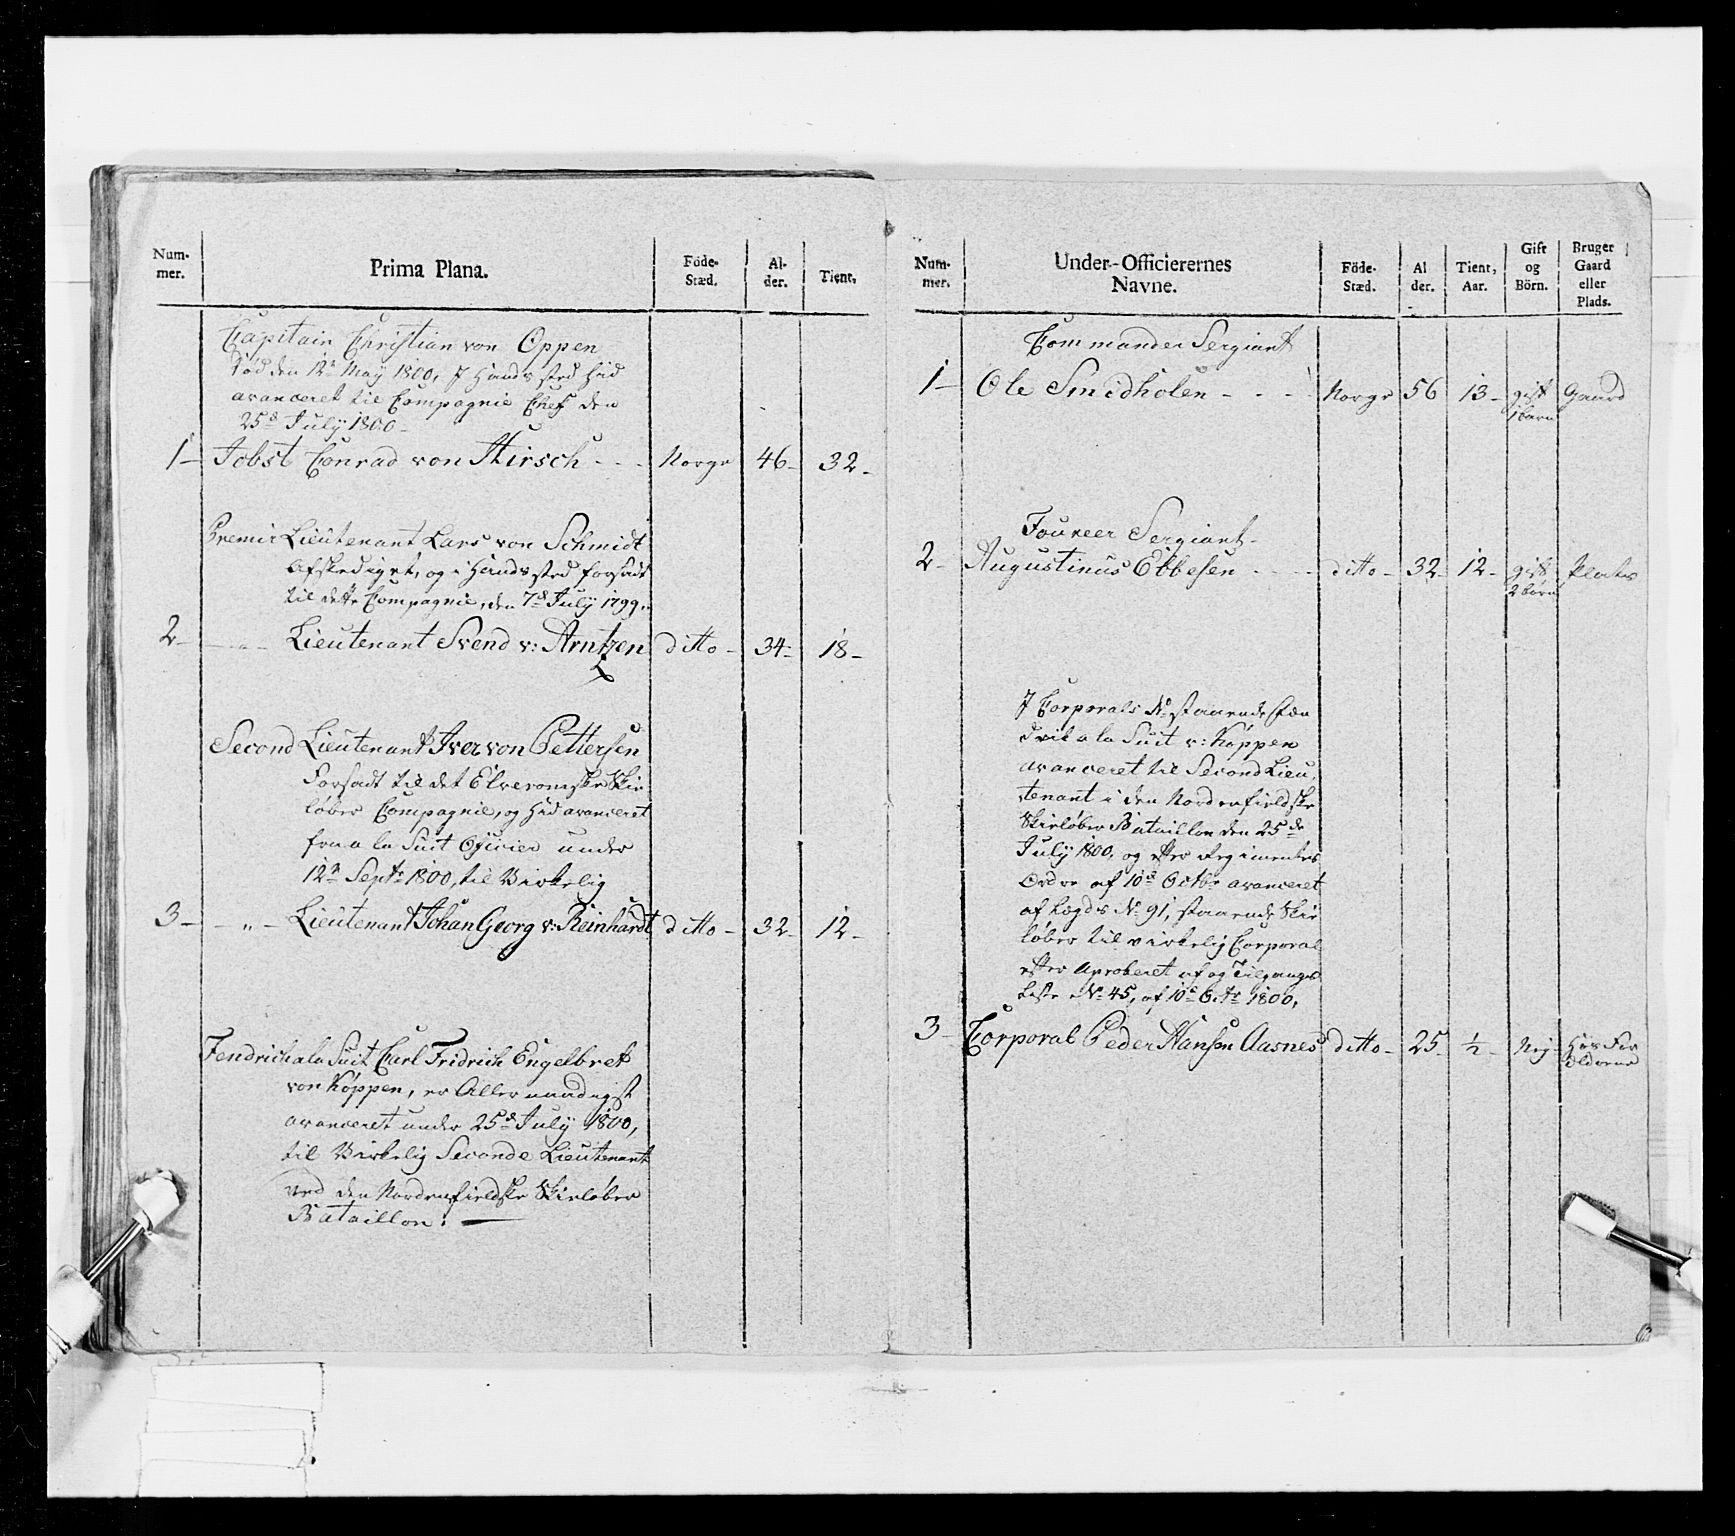 Num-
mer.
Prima Plana.
Föde-
Stæd.
Al-
der.
Tient.
Capitain Christian von Oppen
død den 12te May 1800, I Hands sted hid
avanceret til Compagnie Chef den
25de July 1800
1 Jobst Conrad von Hirsch - - - Norge 46 32
Premier Lieutenant Lars von Schmidt
Afskediget, og i Hands sted forsadt
til dette Compagnie, den 7de July 1799.
2 - „ - Lieutenant Svend v: Arntzen ditto 34 18
Second Lieutenant Iver von Pettersen
Forsadt til det Elveromske Skie
løber Compagnie, og hid avanceret
fra a la Suit Officier under
12te Septr 1800, til Virkelig
3 - „ - Lieutenant Johan Georg v: Reinhardt ditto 32 12
Fendrich a la Suit Carl Fridrich Engelbret
von Køppen, er Aller naadigst
avanceret under 25de July 1800,
til Virkelig Seconde Lieutenant
ved den Nordenfieldske Skieløber
Bataillon.
Num-
mer.
Under-Officierernes
Navne.
Föde-
Stæd.
Al
der.
Tient,
Aar.
Gift
og
Börn.
Bruger
Gaard
eller
Plads.
Commandeer Sergiant
1 Ole Smidholen - - - Norge 56 13 gift Gaard
1 barn
Foureer Sergiant
2 Augustinus Ebbesen - - - ditto 32 12 gift Plads
2 børn
I Corporals No staaende Fæn
drik a la Suit v: Køppen
avanceret til Second Lieu,
tenant i den Nordenfieldske
Skieløber Bataillon den 25de
July 1800, og efter Regimentes
Ordre af 10de Octbr avanceret
af Lægds No 91, staaende Skie
løber til virkelig Corporal
efter Aproberet af og Tilgangs
Liste No 45, af 10de Octr 1800,
3 Corporal Peder Hansen Aasnes ditto 25 ½ Nej Hos For
ældrene